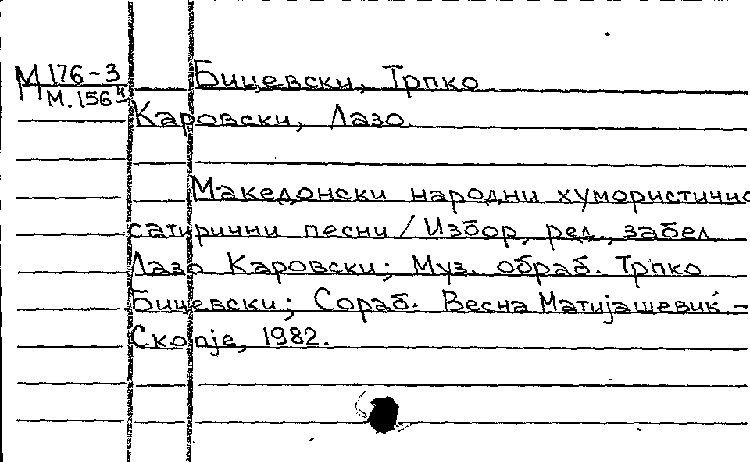 М 176-3 Бицевски, Трпко
М.156ч
Каровски, Лазо.
Македонски народни хумористично
сатирични песни / Избор, ред., забел.
Лазо Каровски; Муз. обраб. Трпко
Бицевски; Сораб. Весна Матијашевиќ. –
Скопје, 1982.